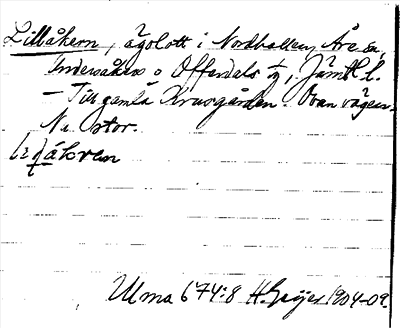 Lillåkern, ägolott i Nordhallen, Åre sn,
Undersåkers o Offerdals tg, Jämtl. l.
– Till gamla Krusgården. Ovan vägen.
N. stor.
åkren
Ulma 674:8 H. Geijer 1904-09.